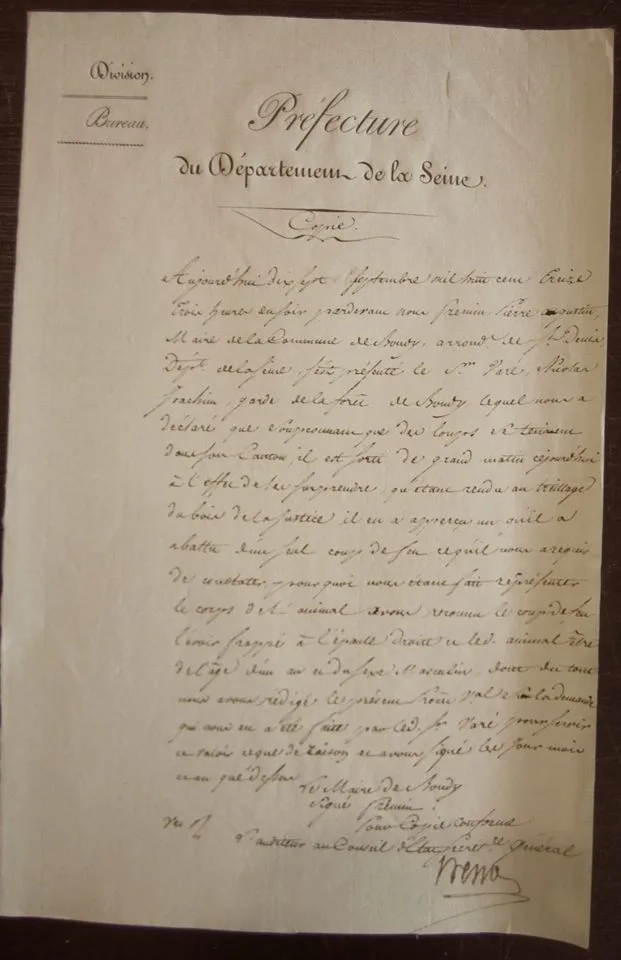 Division.
Bureau.
Préfecture
du Département de la Seine.
Copie.
Aujourd'hui dix sept Septembre mil huit cent treize
trois heures en soir pardevant nous Fremin, Pierre augustin,
Maire de la Commune de Bondy, arrond. de St. Denis
Dépt. de la Seine, s'est présenté le Sr. Varé, Nicolas
Joachim, garde de la forêt de Bondy, lequel nous a
déclaré que Soupçonnant que des loups se tenoient
dans son Canton, il est sorti de grand matin cejourd'hui
à l'effet de les surprendre, qu'étant rendu au treillage
du bois de la Justice il en a apperçu un qu'il a
abattu d'un seul coup de feu et qu'il nous a requis
de constater, pourquoi nous étant fait représenter
le corps de l'animal avons reconnu le coup de feu
l'avoir frappé à l'épaule droite et led. animal être
de l'âge d'un an et du sexe Masculin, dont du tout
nous avons rédigé le présent Procès Val. à la demande
qui nous en a été faite par led. Sr. Varé pour servir
et valoir ce que de raison et avons signé les jour mois
et an que dessus
Le Maire de Bondy
Signé Fremin.
Pour Copie conforme
L'auditeur au Conseil d'Etat, Secret.re général